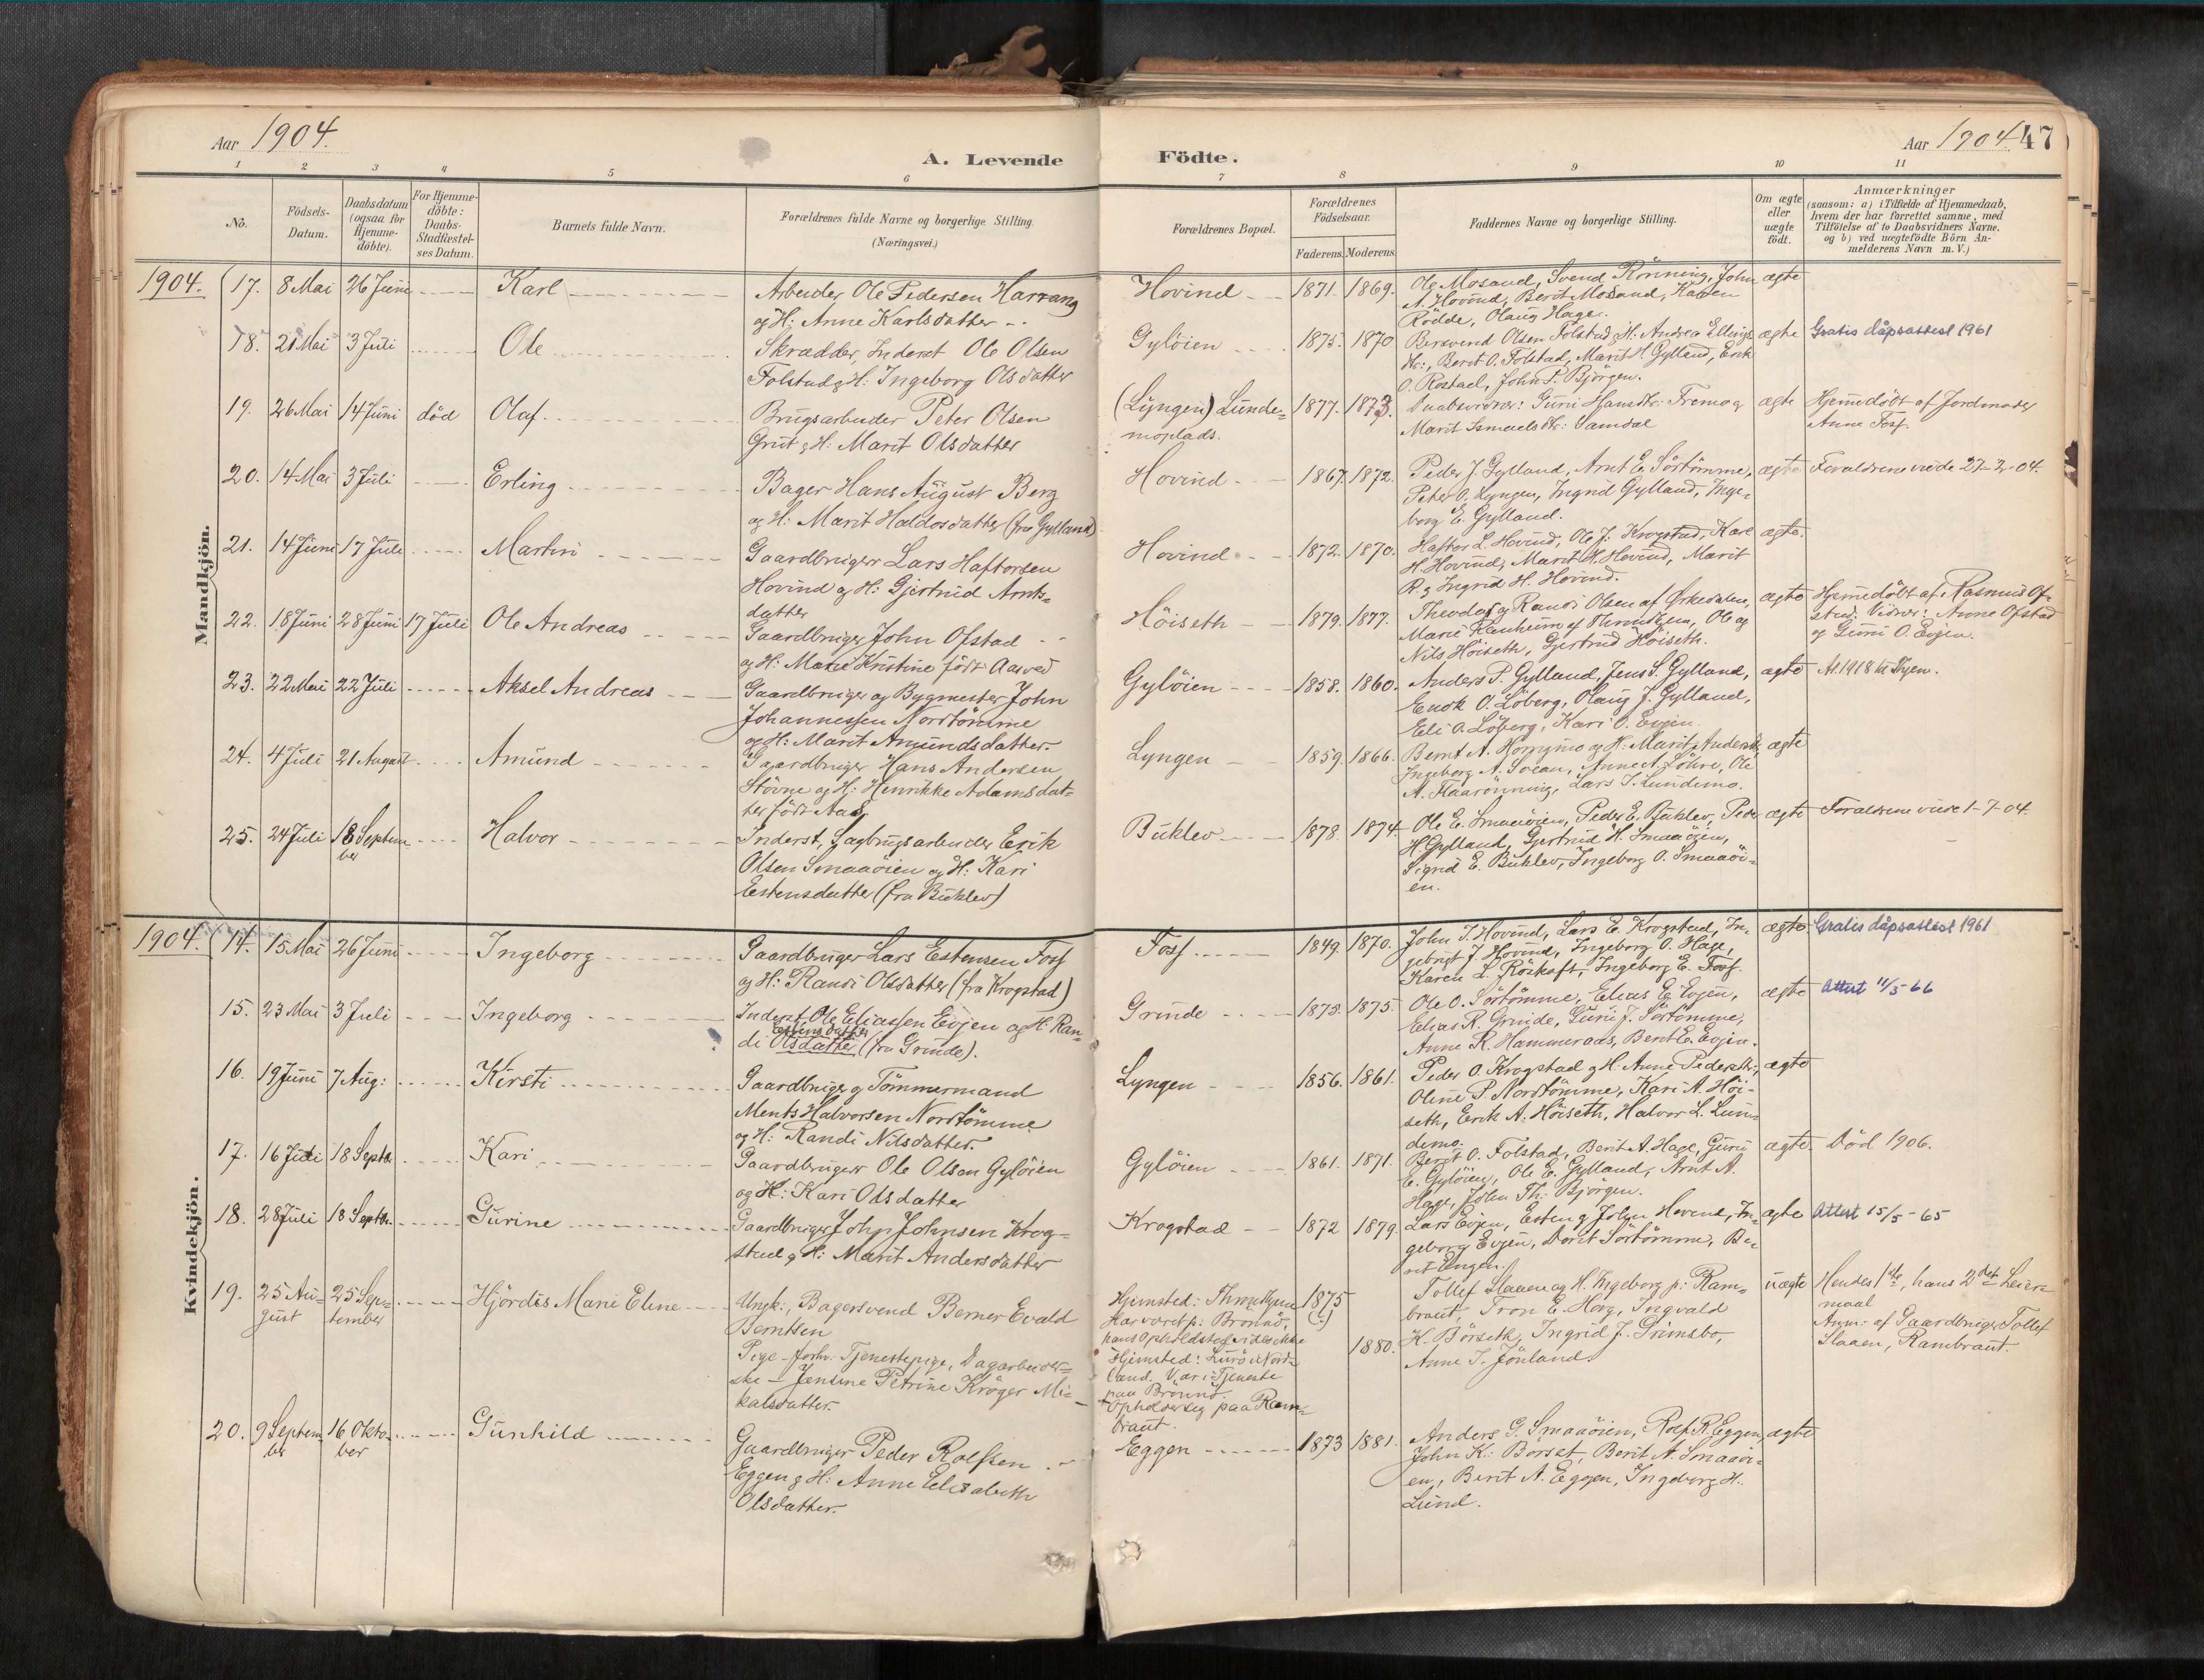 Aar 1904.
A. Levende Födte.
Aar 1904. 47
1 2 3 4 5 6 7 8 9 10 11
No. Födsels-Datum. Daabsdatum (ogsaa for Hjemme-döbte). For Hjemme-döbte: Daabs-Stadfæstel-ses Datum. Barnets fulde Navn. Forældrenes fulde Navne og borgerlige Stilling. (Næringsvei.) Forældrenes Bopæl. Forældrenes Födselsaar. Faderens. Moderens. Faddernes Navne og borgerlige Stilling. Om ægte eller uægte födt. Anmærkninger (saasom: a) i Tilfælde af Hjemmedaab, hvem der har forrettet samme, med Tilföielse af to Daabsvidners Navne. og b) ved uægtefödte Börn An-melderens Navn m.V.)
Mandkjön.
1904. 17. 8 Mai 26 Juni Karl
Arbeider Ole Pedersen Harrang
og H: Anne Karlsdatter
Hovind 1871. 1869.
Ole Mosand, Svend Rönning, John
A. Hovind, Berit Mosand, Karen
Rödde, Olaug Hage.
ægte
18. 21 Mai 3 Juli Ole
Skrædder, Inderst Ole Olsen
Folstad og H: Ingeborg Olsdatter
Gylöien 1875. 1870
Bersvend Olsen Folstad, H. Andrea Ellings
dtr:, Berit O. Folstad, Marit H Gylland, Erik
O. Rostad, John P. Björgen.
ægte Gratis dåpsattest 1961
19. 26 Mai 14 Juni död Olaf.
Brugsarbeider Peter Olsen
Grut og H: Marit Olsdatter
(Lyngen) Lunde=
moplads. 1877. 1873.
Daabsvidner: Guri Hansdtr: Fremo og
Marit Ismaelsdtr: Samdal
ægte Hjemedöbt af Jordmoder
Anne Fosf.
20. 14 Mai 3 Juli Erling
Bager Hans August Berg
og H: Marit Haldosdatter (fra Gylland)
Hovind 1867. 1872.
Peder J. Gylland, Arnt E. Sörtömme,
Peter O. Lyngen, Ingrid Gylland, Inge-
borg E. Gylland.
ægte Forældrene viede 27-2-04.
21. 14 Juni 17 Juli Martin
Gaardbruger Lars Haftorsen
Hovind og H: Gjertrud Arnts=
datter
Hovind 1872. 1870.
Haftor L. Hovind, Ole J. Krogstad, Karl
H. Hovind, Marit H. Hovind, Marit
R. og Ingrid H. Hovind.
ægte.
22. 18 Juni 28 Juni 17 Juli Ole Andreas
Gaardbruger John Ofstad
og H: Marie Kristine födt Aasved
Höiseth 1879. 1877.
Theodor og Randi Olsen af Örkedalen,
Marie Klenheim af Throndhjem, Ole og
Nils Höiseth, Gjertrud Höiseth.
ægte Hjemedöbt af Rasmus Of-
stad. Vidner: Anne Ofstad
og Guri O. Evjen.
23. 22 Mai 22 Juli Aksel Andreas
Gaardbruger og Bygmester John
Johannessen Nordtömme
og H: Marit Amundsdatter.
Gylöien 1858. 1860.
Anders P. Gylland, Jens S. Gylland,
Enok O. Löberg, Olaug J. Gylland,
Eli A Löberg, Kari O. Evjen.
ægte At. 1918 til Thjem.
24. 4 Juli 21 August Amund
Gaardbruger Hans Andersen
Stövne og H: Henrikke Adamsdat=
ter födt Aas
Lyngen 1859. 1866.
Bernt A. Horgmo og H. Marit Andersdtr,
Ingeborg A. Svean, Anne A. Löhre, Ole
A. Flaarönning, Lars I. Lundemo.
ægte
25. 24 Juli 18 Septem-
ber Halvor
Inderst, Sagbrugsarbeider Erik
Olsen Smaaöien og H: Kari
Eestensdatter (fra Buklev)
Buklev 1878. 1874
Ole E. Smaaöien, Peder E. Buklev, Peder
H. Gylland, Gjertrud H. Smaaöien,
Sigrid E. Buklev, Ingeborg O. Smaaöi-
en.
ægte Forældrene viede 1-7-04.
Kvindekjön.
1904. 14. 15 Mai 26 Juni Ingeborg
Gaardbruger Lars Estensen Fosf
og H: Randi Olsdatter (fra Krogstad)
Fosf 1849. 1870.
John I. Hovind, Lars E. Krogstad, In-
gebrigt J. Hovind, Ingeborg O. Hage,
Karen L. Röskaft, Ingeborg E. Fosf.
ægte. Gratis dåpsattest 1961
15. 23 Mai 3 Juli Ingeborg
Inderst Ole Eliassen Evjen og H: Ran-
Estensdatter
di Olsdatter (fra Grinde).
Grinde 1873. 1875.
Ole O. Sörtömme, Elias E. Evjen,
Elias R. Grinde, Guri J. Sörtömme,
Anne R. Hammeraas, Berit E. Evjen.
ægte Attest 11/5 66
16. 19 Juni 7 Aug: Kirsti
Gaardbruger og Tömmermand
Ments Halvorsen Nordtömme
og H: Randi Nilsdatter.
Lyngen 1856. 1861.
Peder O. Krogstad og H. Anne Pedersdtr,
Oline P. Nordtömme, Kari A. Höi-
seth, Erik A. Höiseth, Halvor L. Lun-
demo.
ægte
17. 16 Juli 18 Septbr Kari
Gaardbruger Ole Olsen Gylöien
og H: Kari Olsdatter
Gylöien 1861. 1871.
Berit O. Folstad, Berit A. Hage, Guru
E. Gylöien, Ole E. Gylland, Arnt A.
Hage, John Th: Björgen.
ægte. Död 1906.
18. 28 Juli 18 Septbr. Gurine
Gaardbruger John Johnsen Krog=
stad og H: Marit Andersdatter
Krogstad 1872 1879.
Lars Evjen, Esten og John Hovind, In-
geborg Evjen, Dorit Sörtömme, Be-
rit Engen.
ægte Attest 15/5-65
19. 25 Au-
gust 25 Sep-
tember Hjördis Marie Eline
Ungk:, Bagersvend Berner Evald
Berntsen
Pige - forhv: Tjenestepige, Dagarbeider-
ske - Jensine Petrine Kröger Mi=
kalsdatter.
Hjemsted: Thrnhjem
Har været p: Brönnö,
hans opholdsted vides ikke
Hjemsted: Lurö i Nord-
land. Var i Tjeneste
paa Brönnö.
Opholder sig paa Ram-
braut.
1875
(?)
1880.
Tollef Slaaen og H. Ingeborg p: Ram-
braut, Tron E. Horg, Ingvald
K. Börseth, Ingrid J. Grimsbo,
Anne I. Jönland.
uægte Hendes 1ste, hans 2det Leier-
maal
Anm: af Gaardbruger Tollef
Slaaen, Rambraut.
20. 9 Septem-
ber 16 Okto-
ber Gunhild
Gaardbruger Peder Rolfsen
Eggen og H: Anne Elisabeth
Olsdatter.
Eggen 1873 1881.
Anders G. Smaaöien, Rolf R. Eggen,
John K: Börset, Berit A. Smaaöi-
en, Berit A. Eggen, Ingeborg H.
Lund.
ægte